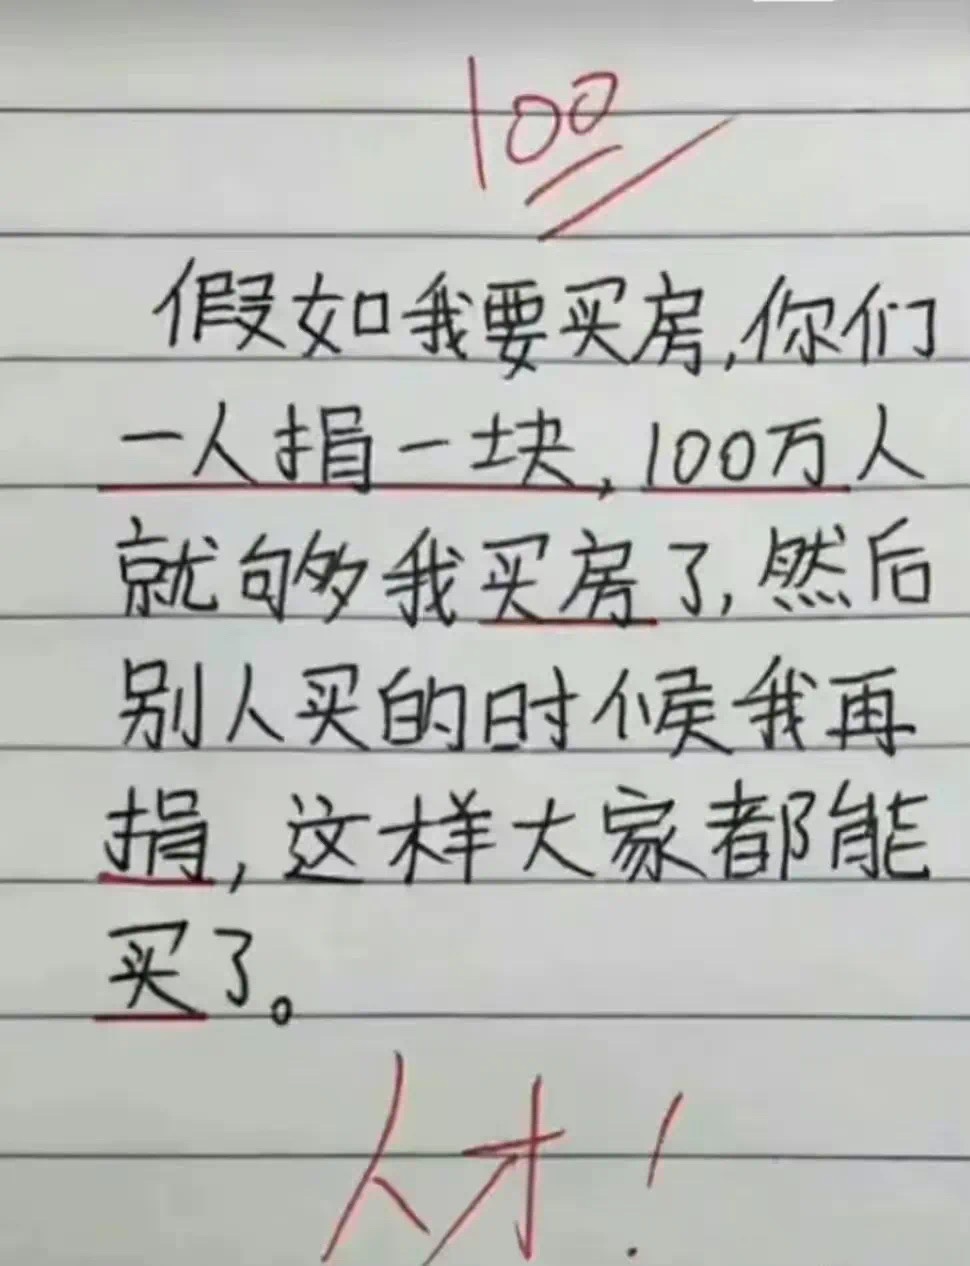 100
假如我要买房,你们
一人捐一块,100万人
就够我买房了,然后
别人买的时候我再
捐,这样大家都能
买了。
人才!